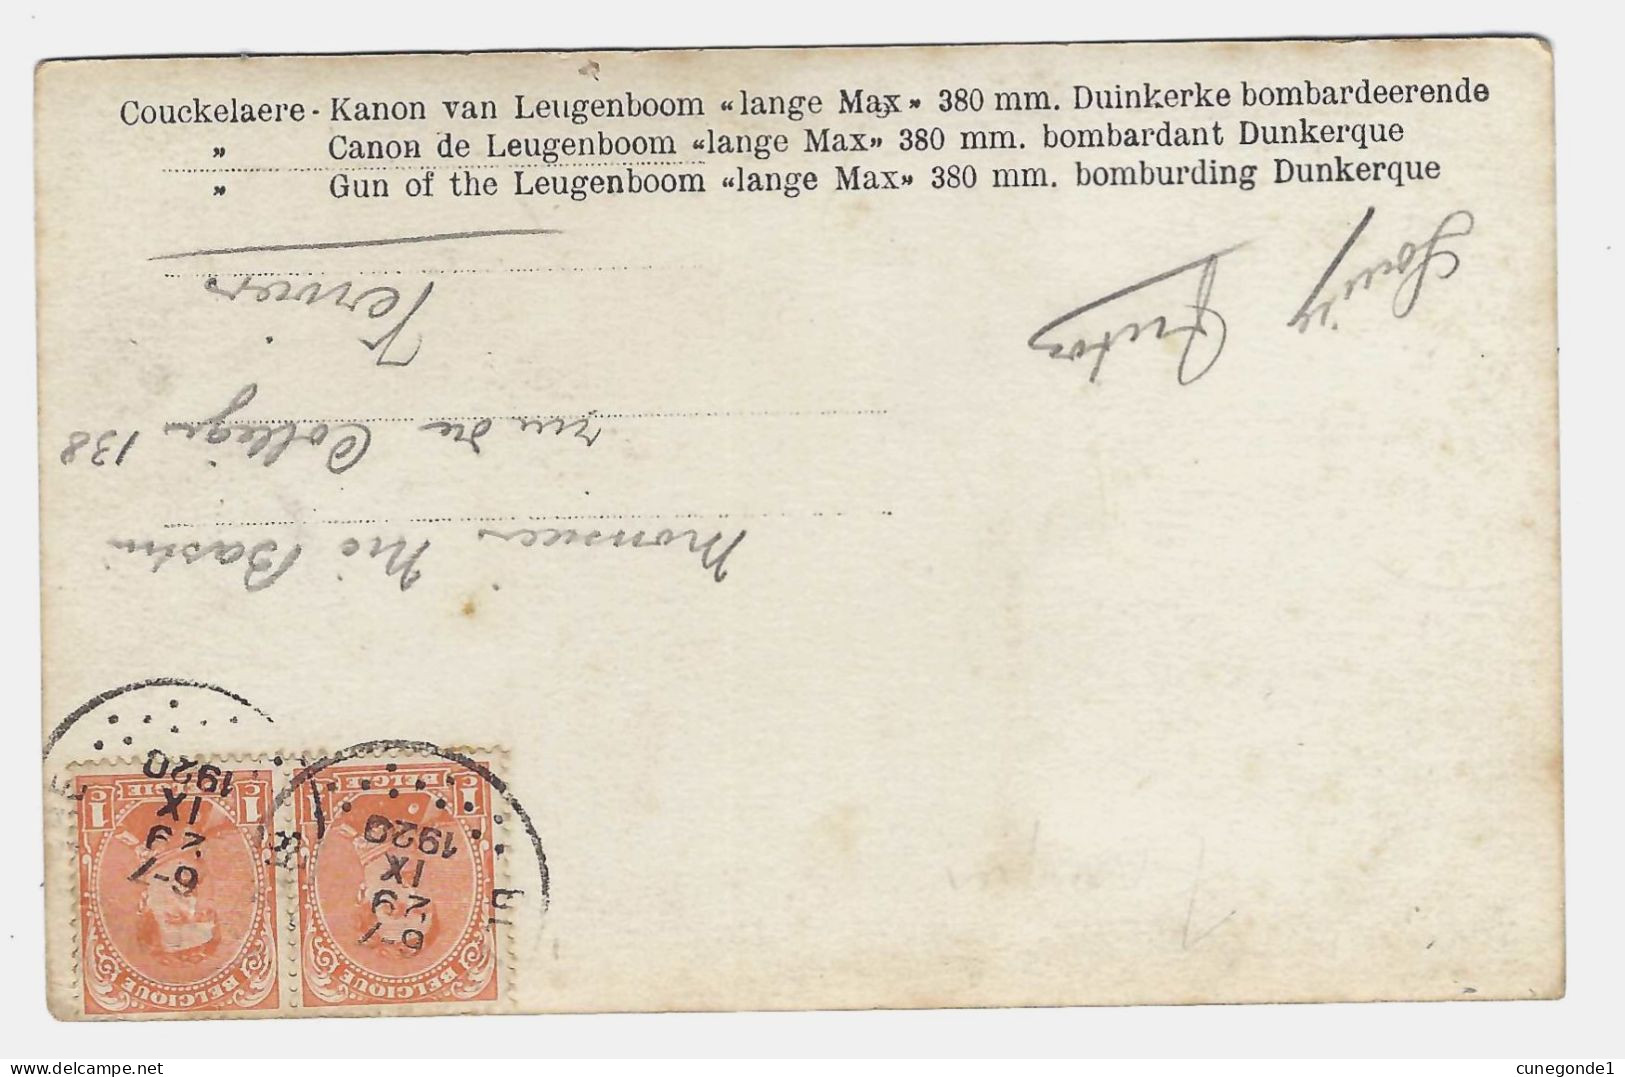 Couckelaere - Kanon van Leugenboom «lange Max» 380 mm. Duinkerke bombardeerende
» Canon de Leugenboom «lange Max» 380 mm. bombardant Dunkerque
» Gun of the Leugenboom «lange Max» 380 mm. bomburding Dunkerque
Monsieur Bastin
rue de College 138
BELGIQUE
BELGIQUE
6-7
29
IX
1920
6-7
29
IX
1920
1 C
BELGIE
1 C
1 C
BELGIE
1 C
cunegonde1